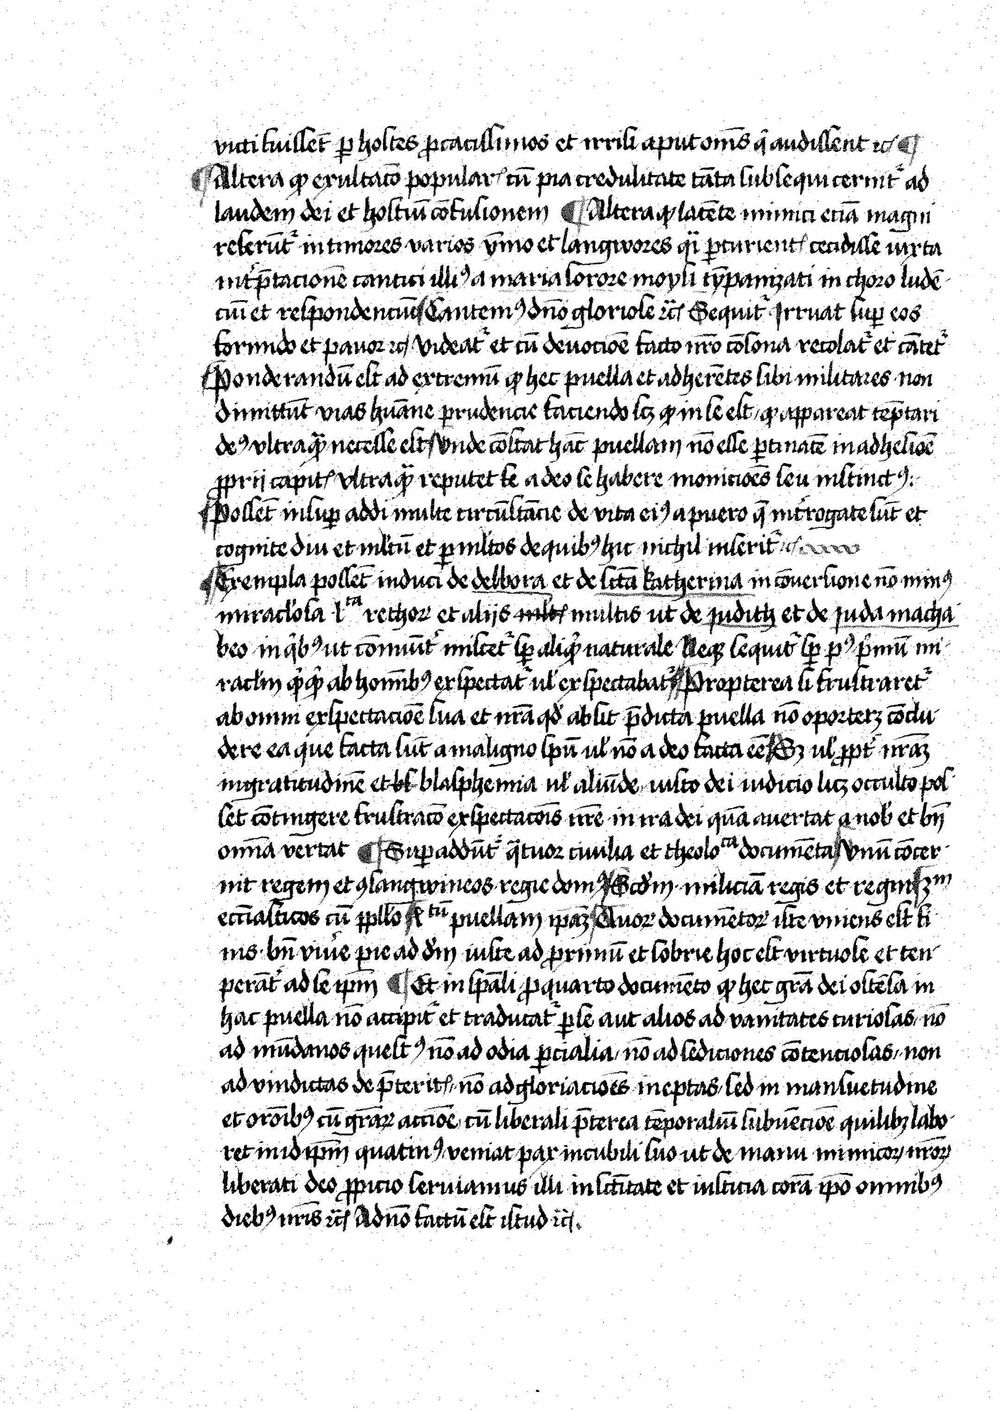 victi fuissēt p̄ hostes ꝓcacissimos et irrisi aput om̄s q̄ audissent ⁊c̄ ¶
¶ Altera ꝙ exultacō popular̄ cū pia credulitate tāta subsequi cernit᷑ ad
laudem dei et hostiū cōfusionem ¶ Altera ꝙ latēte inimici eciā magni
referūt᷑ in timores varios ymo et langwores qͣi ꝑturient̄ cecidisse iuxta
int᷑p̄tacionē cantici illiꝰ a maria sorore moysi tympanizati in choro ludē-
ciū et respondenciū Cantemꝰ dn̄o gloriose ⁊c̄ Sequit᷑ Irruat suꝑ eos
formido et pauor ⁊c̄ videat᷑ et cū deuocioē facto nr̄o cōsona recolat᷑ et cātet᷑
¶ Ponderandū est ad extremū ꝙ hec puella et adherētes sibi militares non
dimittūt vias hūane prudencie faciendo scꝫ ꝙ in se est, ꝙ appareat tēptari
deꝰ vltra qͣ necesse est, vnde cōstat hāc puellam nō esse ꝑtinatē in adhesioē
ꝓprij capit̄ vltra qͣ reputet se a deo se habere monicioēs seu instinctꝰ.
¶ Possēt insuꝑ addi multe circūstācie de vita eiꝰ a puero q̄ int᷑rogate sūt et
cognite diu et ml̄tū et ꝑ ml̄tos de quibꝰ hic nichil inserit᷑ ⁊c̄
¶ Exempla possēt induci de delbora et de sctā katherina in cōuersione nō minꝰ
miracl̄osa l ͭͣ rethor̄ et alijs ml̄t̄ multis ut de judith et de juda macha-
beo in qͥbꝰ ut comūt᷑ miscet᷑ sꝑ aliqͥ naturale Neqꝫ sequit᷑ sꝑ pꝰ pͥmū mi-
racl̄m qͥqͥ ab homībꝰ exspectat᷑ ul̄ exspectabat᷑ Propterea si frustraret᷑
ab omni exspectacioē sua et nr̄a qd̄ absit p̄dicta puella nō oporteꝫ cōclu-
dere ea que facta sūt a maligno spū ul̄ nō a deo facta eē Sꝫ ul̄ ꝓpt᷑ nr̄aꝫ
ingratitudinē et bl̄ blasphemia ul̄ aliūde, iusto dei iudicio licꝫ occulto pos-
set cōtingere frustracō exspectacōis nr̄e in ira dei quā auertat a nob̄ et bn̄
om̄ia vertat ¶ Suꝑaddūt᷑ qͣtuor ciuilia et theolo ͨͣ documēta, vnū cōcer-
nit regem et ꝯsangwineos regie domꝰ Scd̄m miliciam regis et regni ꝫͫ
ecc̄iasticos cū ppl̄o 4 ͭͧ puellam ipāꝫ Quor̄ documētor̄ iste vniens est fi-
nis bn̄ viuͤe pie ad dm̄ iuste ad proximū et sobrie hoc est virtuose et ten-
perāt᷑ ad se ipm̄ ¶ Et in spāli ꝓ quarto documēto ꝙ hec grā dei ostēsa in
hac puella nō accipit᷑ et traducat᷑ ꝑ se aut alios ad vanitates curiosas, nō
ad mūdanos questꝰ, nō ad odia ꝑcialia, nō ad sediciones cōtenciosas, non
ad vindictas de p̄terit̄, nō ad gloriacioēs ineptas, sed in mansuetudine
et orōibꝰ cū grār̄ accioē, cū liberali p̄terea tēporaliū subuēcioē quilibꝫ labo-
ret in id ipm̄ quatinꝰ veniat pax in cubili suo ut de manu inimicor̄ nr̄or̄
liberati deo ꝓpicio seruiamus illi in sctītate et iusticia corā ipō omnibꝰ
diebꝰ nr̄is ⁊c̄ A dn̄o factū est istud ⁊c̄.